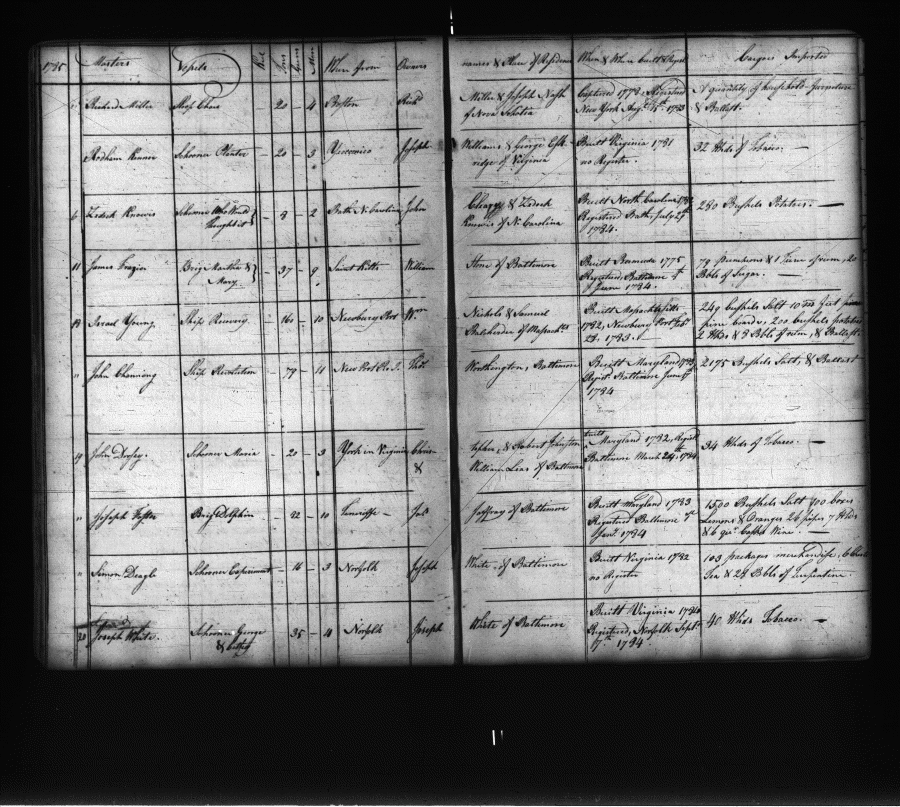 1785 Masters Vessels Tons Guns Men Where from Owners names & Place of Residence When & Where built & Regd Cargoes Imported
Miller Sloop Chase 20 4 Boston Richd
Miller & Joseph Nash
of Nova Scotia
Captured 1778, Registered
New York Augt 1783
A quantity of household furniture
& Ballast
Rodham Kenner Schooner Planter 20 3 Yeocomico Joseph
Williams & George Esk
ridge of Virginia
Built Virginia 1781
no Register
32 Hhds of Tobacco
Zedock Knowis Schooner Who Woud
thought it 8 2 Bath N. Carolina John
Cleargy & Zedock
Knowes of N. Carolina
Built North Carolina
Registered Bath, July 29th
1784.
280 Bushels Potatoes
11 James Frazier Brig Martha &
Mary 37 9 Saint Kitts William
Stone of Baltimore
Built Bermuda 1775
Registered, Baltimore
June 1784.
79 puncheons & 1 Tierce of rum, 20
Bbls of Sugar.
Israel Young Ship 160 10 Newbury Port Wm
Nichols & Samuel
Batchelder of Massachts
Built Massachusetts
1782, Newbury Port
1783.
249 bushels Salt 10 feet pine
boards, 200 bushels potatoes
2 Hhds & 3 Bbls of rum, & Ballast
" John Channing Ship Revolution 79 11 New Port R. I. Thos
Worthington, Baltimore
Built Maryland
Regd Baltimore June
1784
2175 Bushels Salt, & Ballast
19 John Dorsey Schooner Maria 20 3 York in Virginia Chris
&
topher, & Robert Johnston
William Lear of Baltimore
built
Maryland 1782, Regist
Baltimore March 24th 1784
34 Hhds of Tobacco.
" Joseph Foster Brig Dolphin 22 10 Teneriffe Jas
Jaffray of Baltimore
Built Maryland 1783
Registered Baltimore
Jany 1784
1500 Bushels Salt 400 boxes
Lemons & Oranges 24 pipes 7 Hhds
& 6 qr Casks Wine.
" Simon Deagle Schooner Experiment 16 3 Norfolk Joseph
White of Baltimore
Built Virginia 1782
no Register
103 packages merchandise, 6
Tea & 24 Bbls of Turpentine
20 Joseph White Schooner George
& betsey 35 4 Norfolk Joseph
White of Baltimore
Built Virginia 1784
Registered, Norfolk Septr
17th 1784
40 Hhds Tobacco.